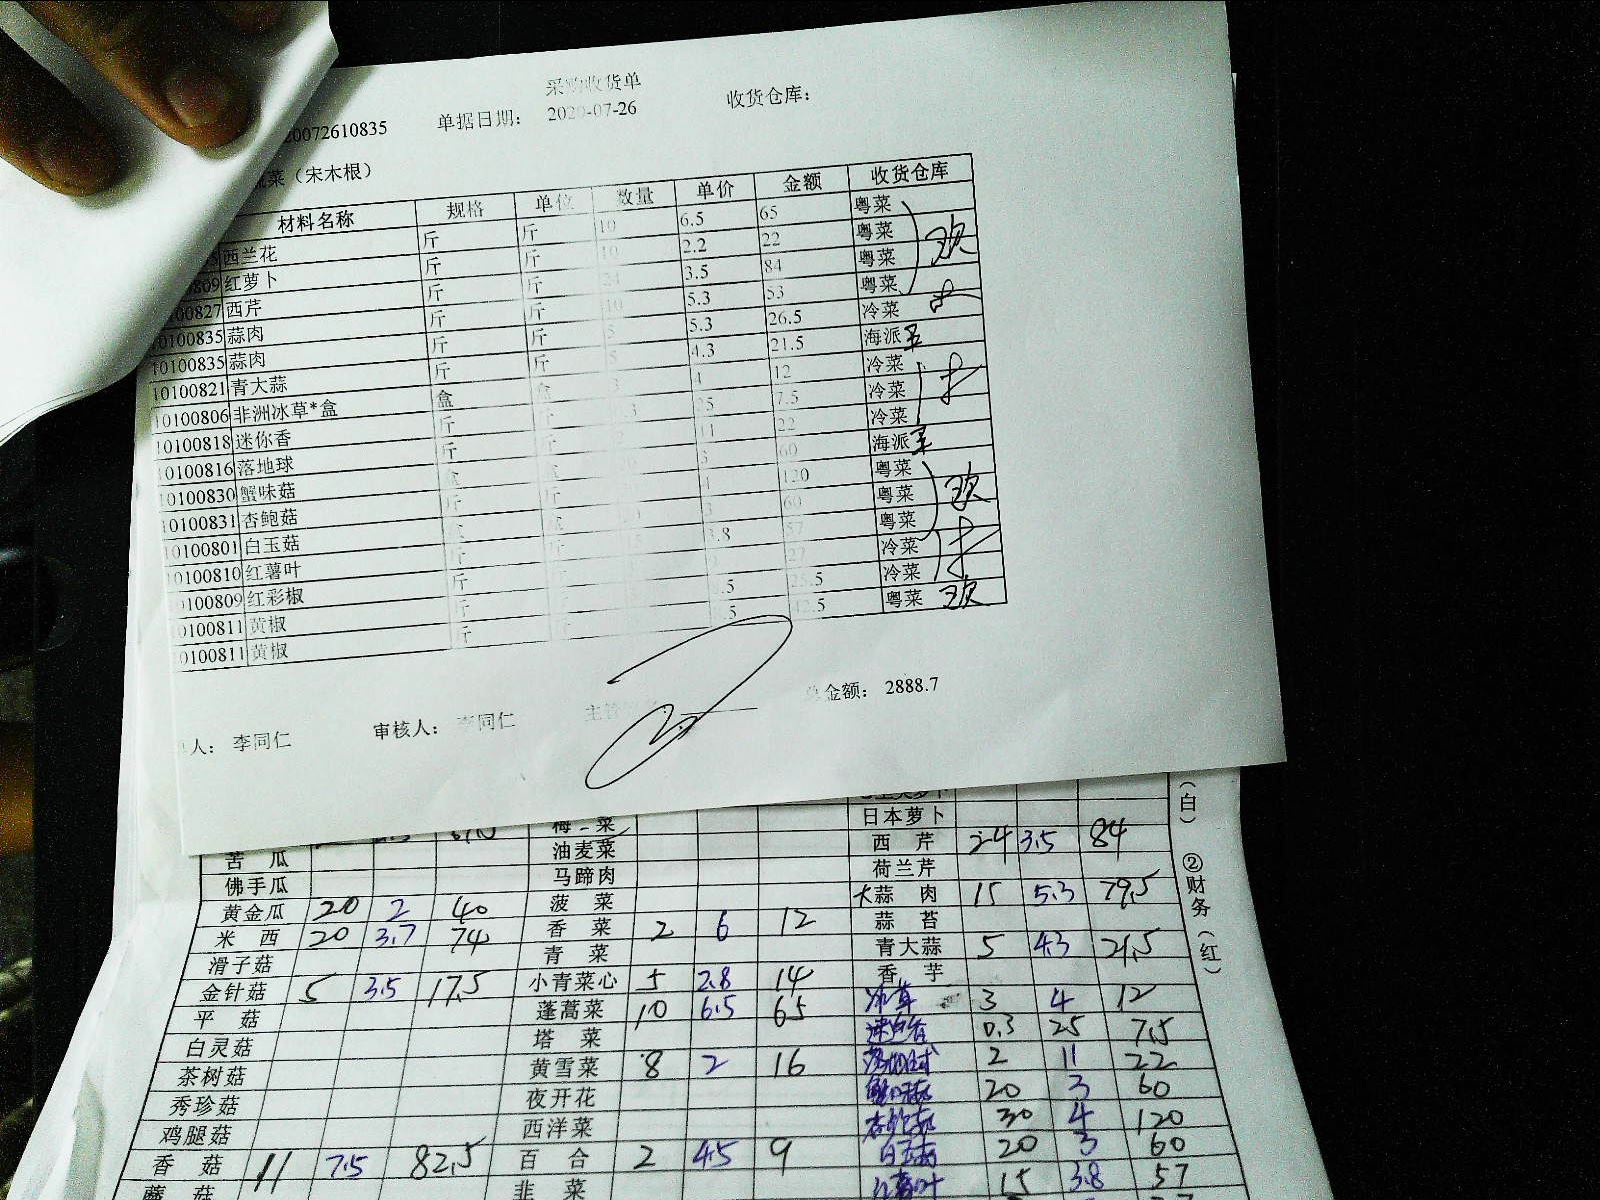 采购收货单
20072610835 单据日期： 2020-07-26 收货仓库：
蔬菜（宋木根）
材料名称 规格 单位 数量 单价 金额 收货仓库
西兰花 斤 斤 10 6.5 65 粤菜
809 红萝卜 斤 斤 10 2.2 22 粤菜
00827 西芹 斤 斤 24 3.5 84 粤菜
10100835 蒜肉 斤 斤 10 5.3 53 粤菜
10100835 蒜肉 斤 斤 5 5.3 26.5 冷菜
10100821 青大蒜 斤 斤 5 4.3 21.5 海派
10100806 非洲冰草*盒 盒 盒 3 4 12 冷菜
10100818 迷你香 斤 斤 25 7.5 冷菜
10100816 落地球 斤 斤 2 11 22 冷菜
10100830 蟹味菇 盒 盒 3 60 海派
10100831 杏鲍菇 斤 斤 4 120 粤菜
10100801 白玉菇 盒 盒 3 60 粤菜
10100810 红薯叶 斤 斤 15 3.8 57 粤菜
10100809 红彩椒 斤 27 冷菜
10100811 黄椒 斤 .5 25.5 冷菜
10100811 黄椒 斤 .5 42.5 粤菜
人： 李同仁 审核人： 李同仁 主管 总金额： 2888.7
日本萝卜
苦瓜 梅菜 西芹 24 3.5 84
佛手瓜 油麦菜 荷兰芹
黄金瓜 20 2 40 马蹄肉 大蒜肉 15 5.3 79.5
米西 20 3.7 74 菠菜 蒜苔
滑子菇 香菜 2 6 12 青大蒜 5 4.3 21.5
金针菇 5 3.5 17.5 青菜 香芋
平菇 小青菜心 5 2.8 14 冰草 3 4 12
白灵菇 蓬蒿菜 10 6.5 65 迷你香 0.3 25 7.5
茶树菇 塔菜 落地球 2 11 22
秀珍菇 黄雪菜 8 2 16 蟹味菇 20 3 60
鸡腿菇 夜开花 杏鲍菇 30 4 120
香菇 11 7.5 82.5 西洋菜 白玉菇 20 3 60
蘑菇 百合 2 4.5 9 红薯叶 15 3.8 57
韭菜
（白） ②财务（红）